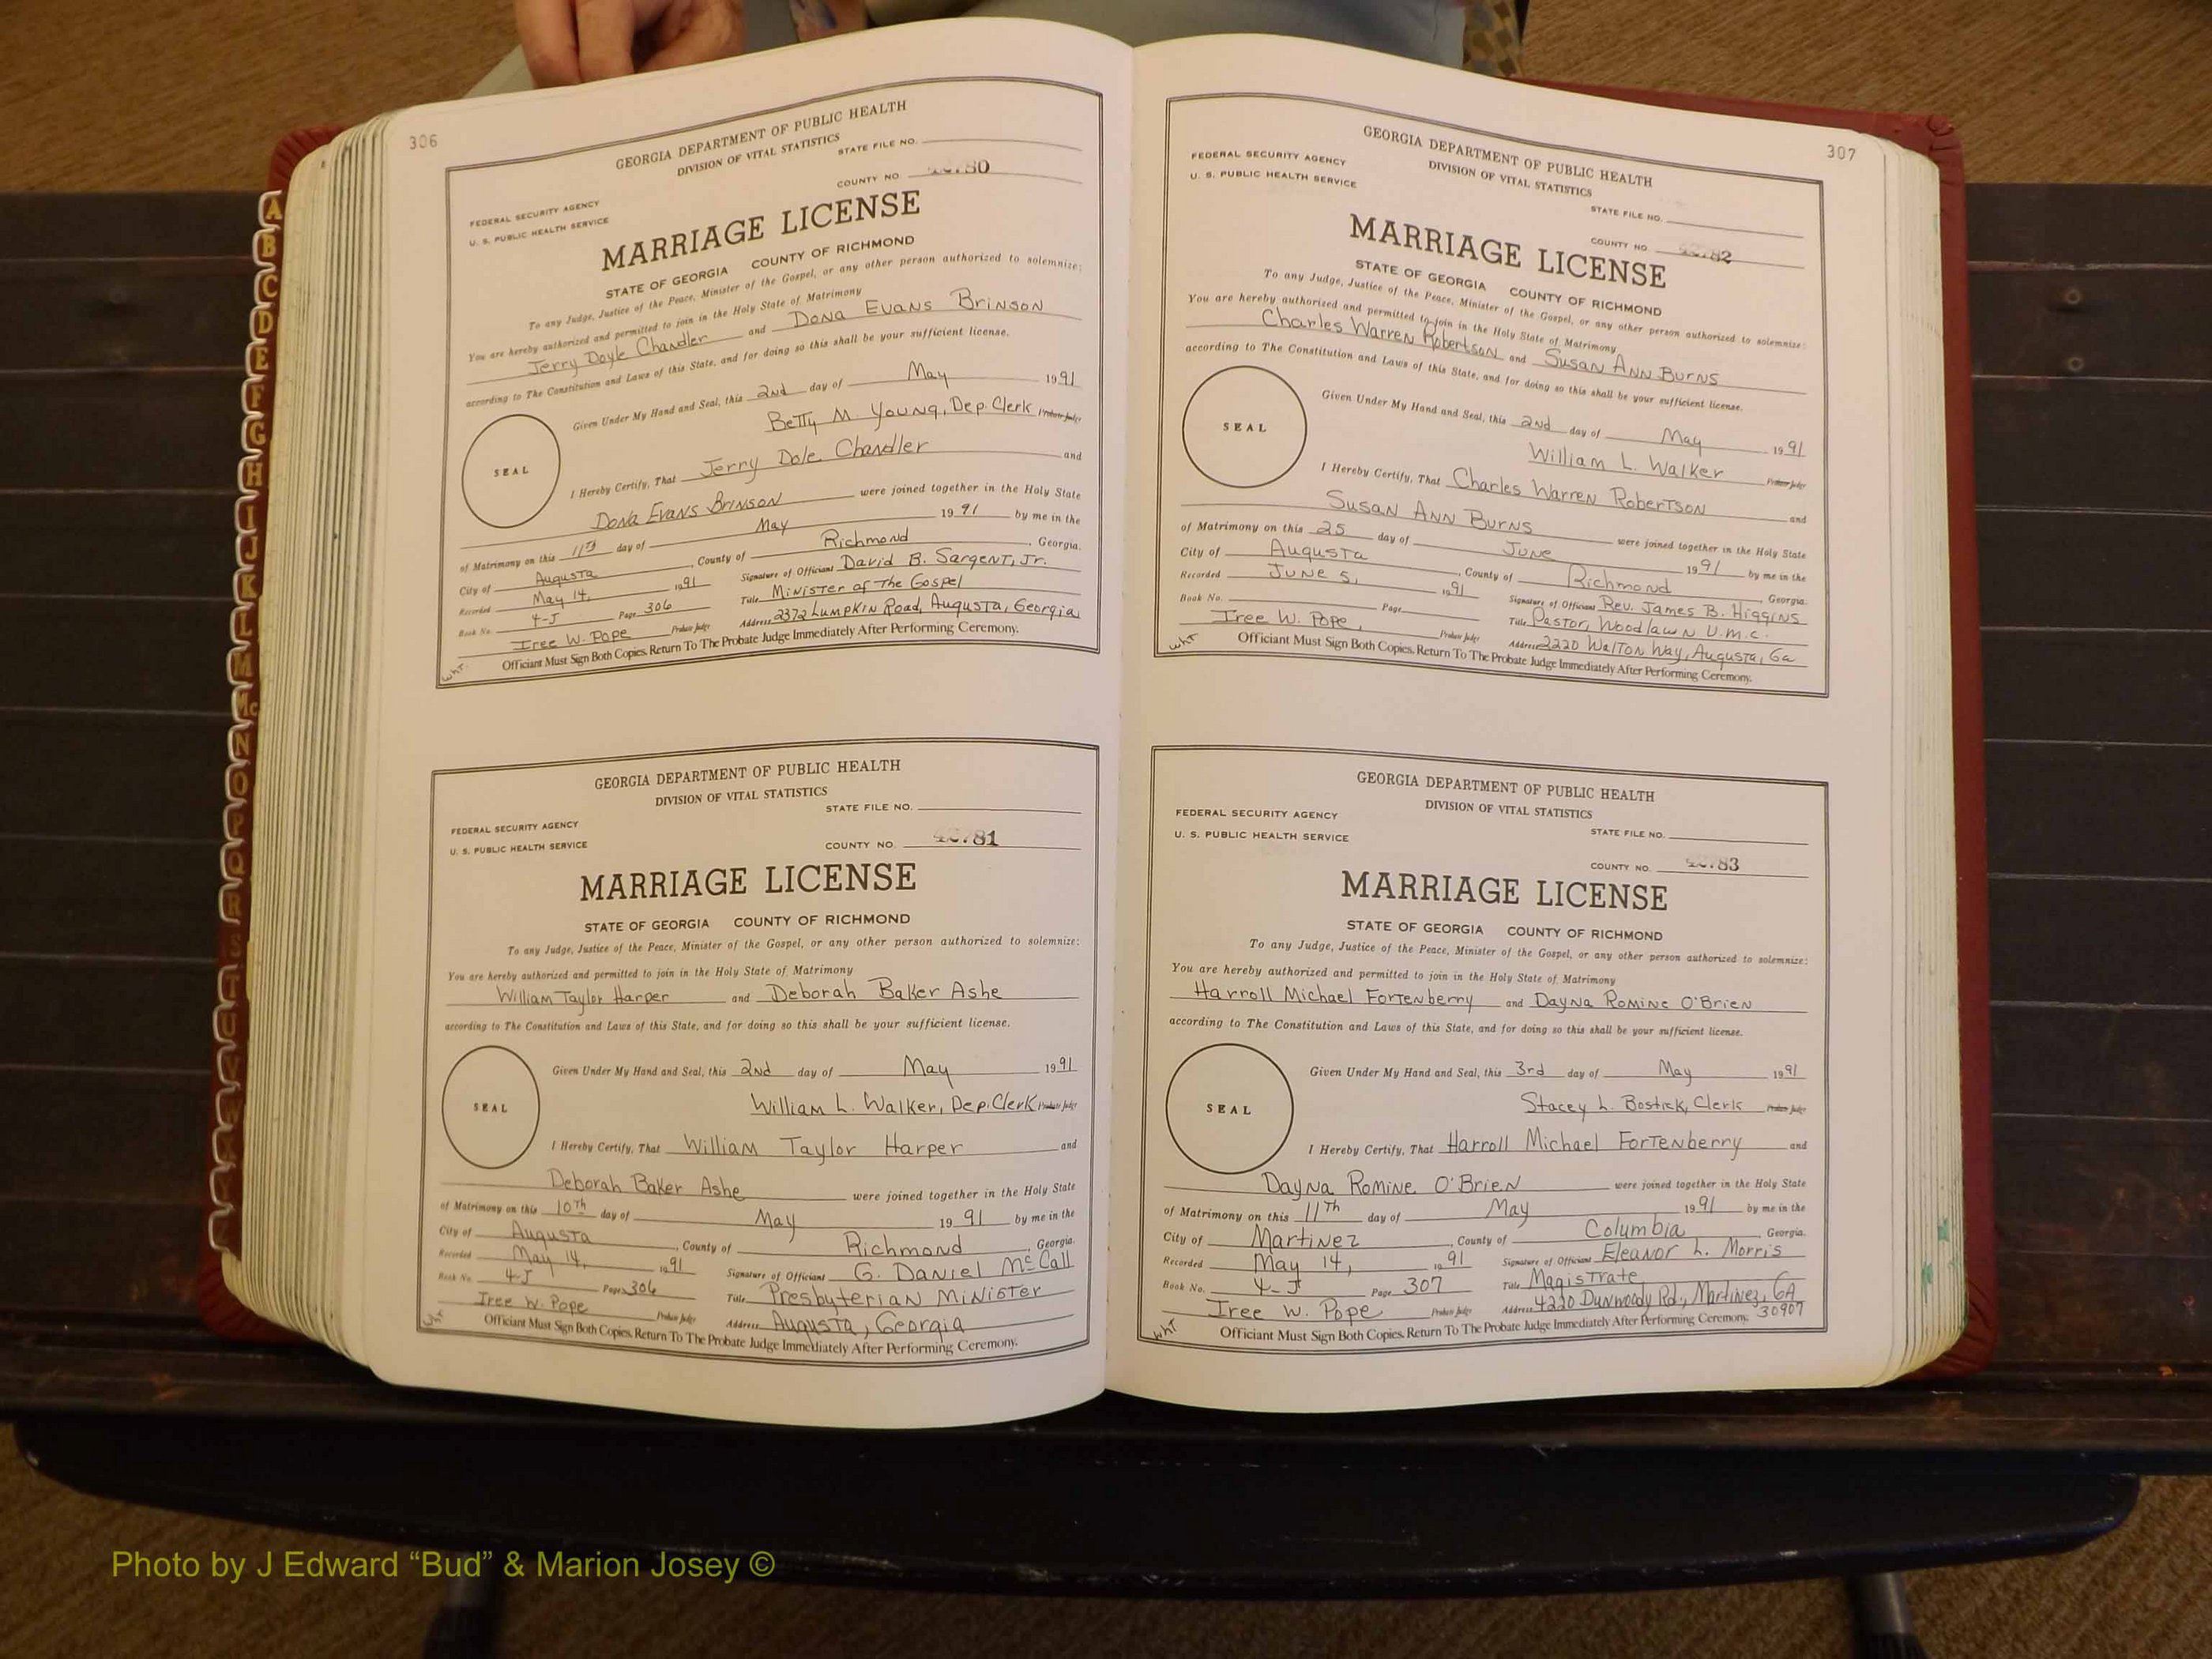 306
GEORGIA DEPARTMENT OF PUBLIC HEALTH
DIVISION OF VITAL STATISTICS
STATE FILE NO.
COUNTY NO
FEDERAL SECURITY AGENCY
U. S. PUBLIC HEALTH SERVICE
MARRIAGE LICENSE
STATE OF GEORGIA COUNTY OF RICHMOND
To any Judge, Justice of the Peace, Minister of the Gospel, or any other person authorized to solemnize:
You are hereby authorized and permitted to join in the Holy State of Matrimony
Jerry Doyle Chandler and Dona Evans Brinson
according to The Constitution and Laws of this State, and for doing so this shall be your sufficient license.
Given Under My Hand and Seal, this 2nd day of May 1991
Betty M Young, Dep. Clerk Probate Judge
SEAL
I Hereby Certify, That Jerry Dole Chandler and
Dona Evans Brinson were joined together in the Holy State
of Matrimony on this 11th day of May 1991 by me in the
City of Augusta, County of Richmond, Georgia.
Recorded May 14, 1991 Signature of Officiant David B. Sargent, Jr.
Book No. 4-J Page 306 Title Minister of The Gospel
Iree W. Pope Probate Judge Address 2372 Lumpkin Road, Augusta, Georgia
Officiant Must Sign Both Copies. Return To The Probate Judge Immediately After Performing Ceremony.
wht
GEORGIA DEPARTMENT OF PUBLIC HEALTH
DIVISION OF VITAL STATISTICS
STATE FILE NO.
FEDERAL SECURITY AGENCY
U. S. PUBLIC HEALTH SERVICE
COUNTY NO.
MARRIAGE LICENSE
STATE OF GEORGIA COUNTY OF RICHMOND
To any Judge, Justice of the Peace, Minister of the Gospel, or any other person authorized to solemnize:
You are hereby authorized and permitted to join in the Holy State of Matrimony
William Taylor Harper and Deborah Baker Ashe
according to The Constitution and Laws of this State, and for doing so this shall be your sufficient license.
Given Under My Hand and Seal, this 2nd day of May 1991
William L. Walker, Dep. Clerk Probate Judge
SEAL
I Hereby Certify, That William Taylor Harper and
Deborah Baker Ashe were joined together in the Holy State
of Matrimony on this 10th day of May 1991 by me in the
City of Augusta, County of Richmond, Georgia.
Recorded May 14, 1991 Signature of Officiant G. Daniel McCall
Book No. 4-J Page 306 Title Presbyterian Minister
Iree W. Pope Probate Judge Address Augusta, Georgia
Officiant Must Sign Both Copies. Return To The Probate Judge Immediately After Performing Ceremony.
307
GEORGIA DEPARTMENT OF PUBLIC HEALTH
DIVISION OF VITAL STATISTICS
FEDERAL SECURITY AGENCY
U. S. PUBLIC HEALTH SERVICE
STATE FILE NO.
COUNTY NO.
MARRIAGE LICENSE
STATE OF GEORGIA COUNTY OF RICHMOND
To any Judge, Justice of the Peace, Minister of the Gospel, or any other person authorized to solemnize:
You are hereby authorized and permitted to join in the Holy State of Matrimony
Charles Warren Robertson and Susan Ann Burns
according to The Constitution and Laws of this State, and for doing so this shall be your sufficient license.
Given Under My Hand and Seal, this 2nd day of May 1991
William L. Walker Probate Judge
SEAL
I Hereby Certify, That Charles Warren Robertson and
Susan Ann Burns were joined together in the Holy State
of Matrimony on this 25 day of June 1991 by me in the
City of Augusta, County of Richmond Georgia.
Recorded June 5, 1991 Signature of Officiant Rev. James B. Higgins
Book No. Page Title Pastor, Woodlawn U.M.C.
Iree W. Pope, Probate Judge Address 2220 Walton Way, Augusta, Ga
Officiant Must Sign Both Copies. Return To The Probate Judge Immediately After Performing Ceremony.
wht
GEORGIA DEPARTMENT OF PUBLIC HEALTH
DIVISION OF VITAL STATISTICS
FEDERAL SECURITY AGENCY
U. S. PUBLIC HEALTH SERVICE
STATE FILE NO.
COUNTY NO.
MARRIAGE LICENSE
STATE OF GEORGIA COUNTY OF RICHMOND
To any Judge, Justice of the Peace, Minister of the Gospel, or any other person authorized to solemnize:
You are hereby authorized and permitted to join in the Holy State of Matrimony
Harroll Michael Fortenberry and Dayna Romine O'Brien
according to The Constitution and Laws of this State, and for doing so this shall be your sufficient license.
Given Under My Hand and Seal, this 3rd day of May 1991
Stacey L. Bostick, Clerk Probate Judge
SEAL
I Hereby Certify, That Harroll Michael Fortenberry and
Dayna Romine O'Brien were joined together in the Holy State
of Matrimony on this 11th day of May 1991 by me in the
City of Martinez, County of Columbia Georgia.
Recorded May 14, 1991 Signature of Officiant Eleanor L. Morris
Book No. 4-J Page 307 Title Magistrate
Iree W. Pope Probate Judge Address 4220 Dunwoody Rd., Martinez, GA 30907
Officiant Must Sign Both Copies. Return To The Probate Judge Immediately After Performing Ceremony.
wht
A
B
C
D
E
F
G
H
I
J
K
L
M
Mc
N
O
P
Q
R
S
T
U
V
W
Photo by J Edward “Bud” & Marion Josey ©